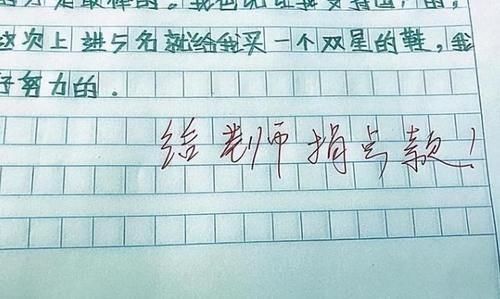 是最棒的。我也
这次上进5名就给我买一个双星的鞋,我
努力的.
给老师捐点款!